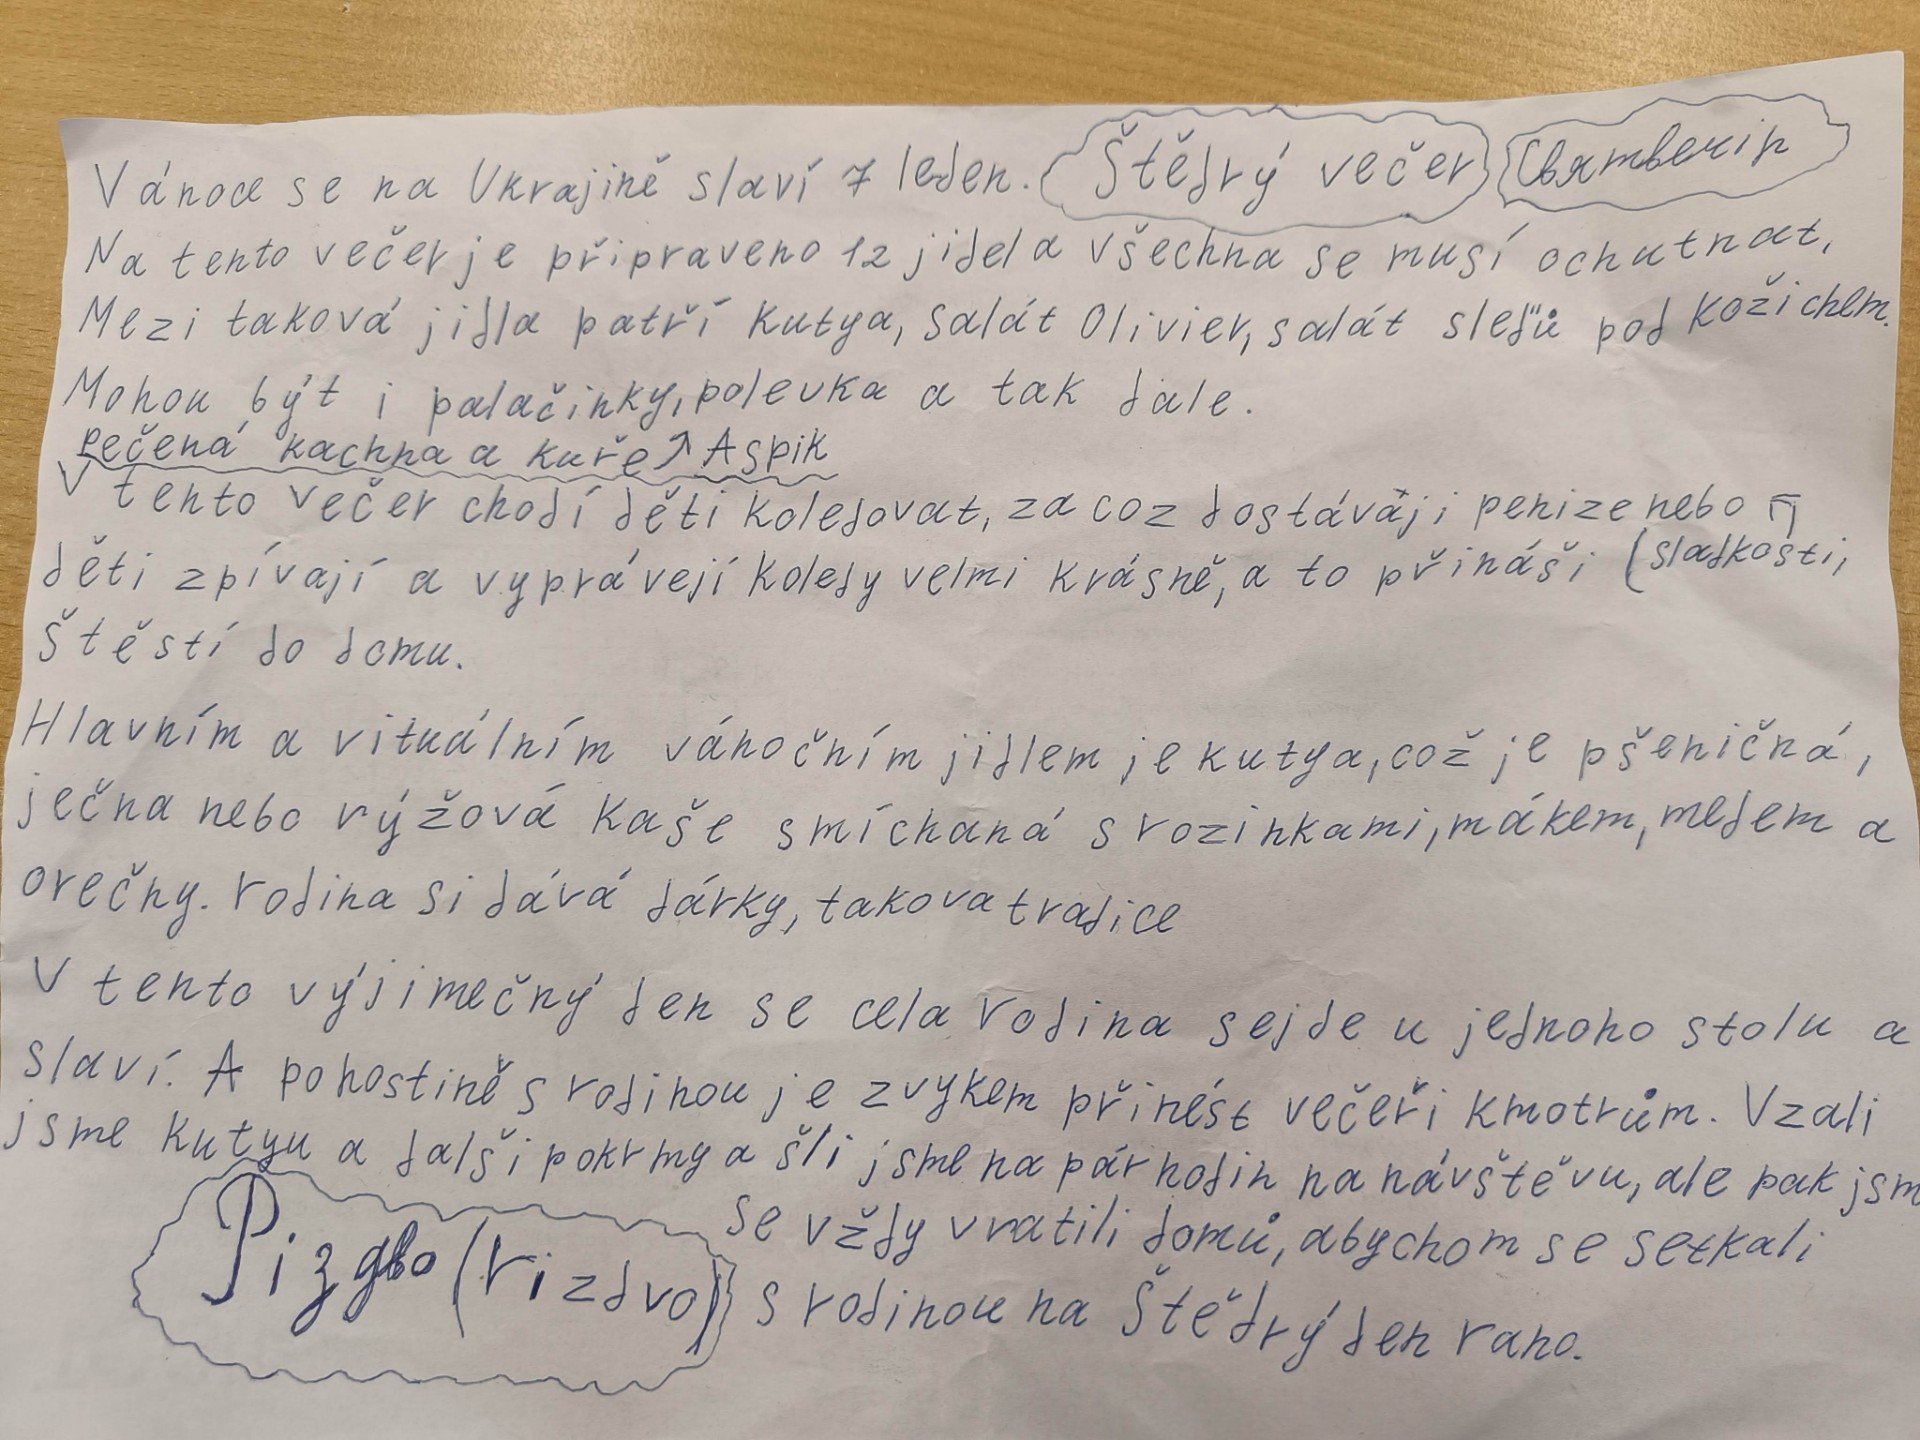 Vánoce se na Ukrajině slaví 7 leden. Štědrý večer Святвечір
Na tento večer je připraveno 12 jidel a všechna se musí ochutnat,
Mezi taková jidla patří kutya, salát Olivier, salát sleďů pod kožichem.
Mohou být i palačinky, polevka a tak dale.
pečená kachna a kuře ↗ Aspik
V tento večer chodí děti koledovat, za coz dostávají penize nebo
děti zpívají a vyprávejí koledy velmi krásně, a to přináši (sladkosti,
štěstí do domu.
Hlavním a rituálním vánočním jidlem je kutya, což je pšeničná,
ječna nebo rýžová kaše smíchaná s rozinkami, mákem, medem a
orečny. rodina si dává dárky, takova tradice
V tento výjimečný den se cela rodina sejde u jednoho stolu a
slaví. A pohostině s rodinou je zvykem přinést večeři kmotrům. Vzali
jsme kutyu a dalši pokrmy a šli jsme na pár hodin na návštěvu, ale pak jsm
se vždy vratili domů, abychom se setkali
Різдво (rizdvo) s rodinou na Štědrý den rano.